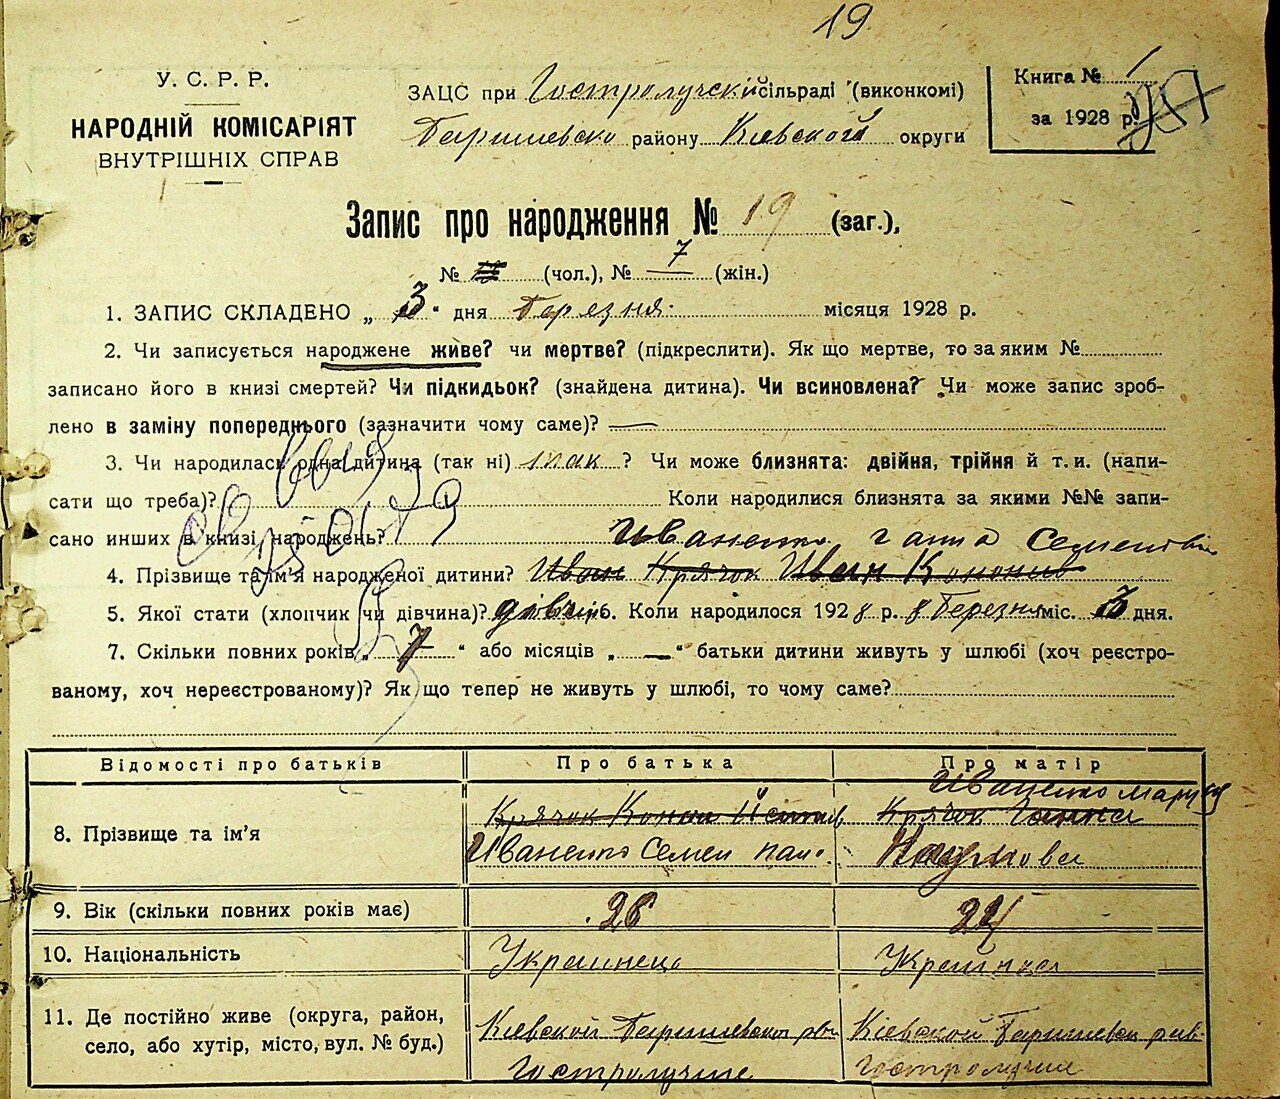 19
У. С. Р. Р.
НАРОДНІЙ КОМІСАРІЯТ
ВНУТРІШНІХ СПРАВ
ЗАЦС при Гостролучскій сільраді (виконкомі)
Баришевско району Кіевской округи
Книга № 1
за 1928 р.
Запис про народження № 19 (заг.),
№ (чол.), № 7 (жін.)
1. ЗАПИС СКЛАДЕНО „ 3 " дня Березня місяця 1928 р.
2. Чи записується народжене живе? чи мертве? (підкреслити). Як що мертве, то за яким №
записано його в книзі смертей? Чи підкидьок? (знайдена дитина). Чи всиновлена? Чи може запис зроб-
лено в заміну попереднього (зазначити чому саме)? —
3. Чи народилась одна дитина (так ні) так ? Чи може близнята: двійня, трійня й т. и. (напи-
сати що треба)? Коли народилися близнята за якими №№ запи-
сано инших в книзі народжень?
Иваненко Ганна Семенівна
4. Прізвище та ім'я народженої дитини? Иван Крячок Иван Кононив
5. Якої стати (хлопчик чи дівчина)? дівчин 6. Коли народилося 1928 р. 8 Березня міс. 3 дня.
7. Скільки повних років „ 7 " або місяців „ — " батьки дитини живуть у шлюбі (хоч реєстро-
ваному, хоч нереєстрованому)? Як що тепер не живуть у шлюбі, то чому саме?
Відомості про батьків Про батька Про матір
Иваненко Маруся
8. Прізвище та ім'я Крячок Конон Крячок Ганна
Иваненко Семен Наумова
9. Вік (скільки повних років має) 26 24
10. Національність Украинець Украинка
11. Де постійно живе (округа, район, Кіевской Баришевской рай Кіевской Баришевск рай
село, або хутір, місто, вул. № буд.) Гостролучие Гостролучие